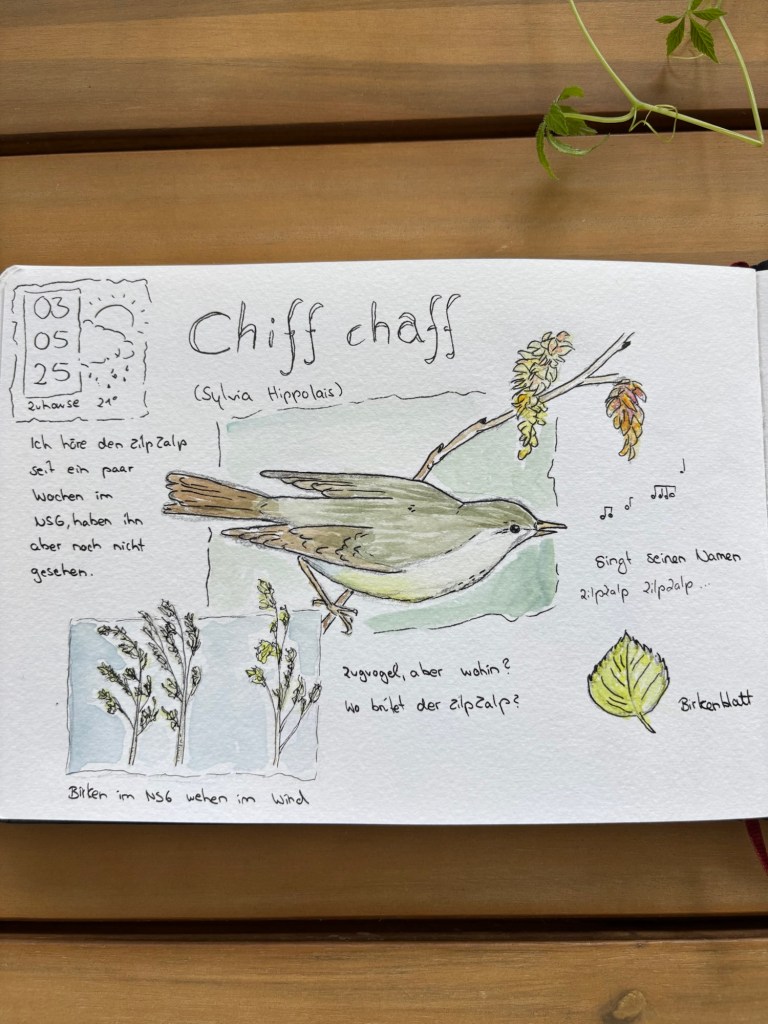 03
05
25
Zuhause 21°
Chiff chaff
(Sylvia Hippolais)
Ich höre den ZilpZalp
seit ein paar
Wochen im
NSG, haben ihn
aber noch nicht
gesehen.
singt seinen Namen
zilpzalp zilpzalp...
Zugvogel, aber wohin?
Wo brütet der ZilpZalp?
Birkenblatt
Birken im NSG wehen im Wind